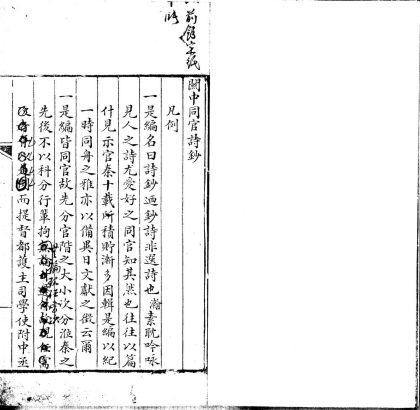 關中同官詩鈔
凡例
一是編名曰詩鈔迺鈔詩非選詩也瀚素耽吟咏
見人之詩尤愛好之同官知其然也往往以篇
什見示官秦十載所積貯漸多因輯是編以紀
一時同舟之雅亦以備異日文獻之徵云爾
一是編皆同官故先分官階之大小次分淮秦之
先後不以科分行輩拘
而提督都護主司學使附中丞